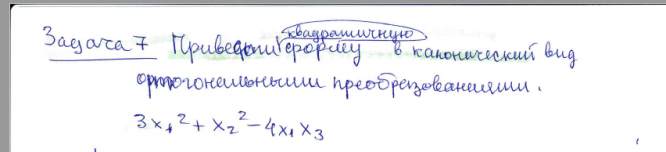 Задача 7 Приведите квадратичную форму в канонический вид
ортогональными преобразованиями.
3x₁² + x₂² - 4x₁ x₃